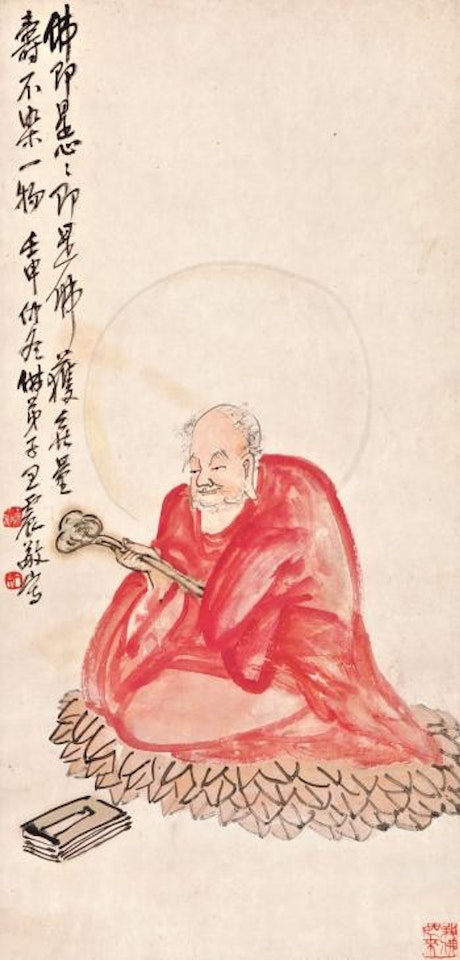 佛即是心〻即是佛獲無量
壽不染一物 壬申仲冬佛弟子王震敬寫
我佛如來